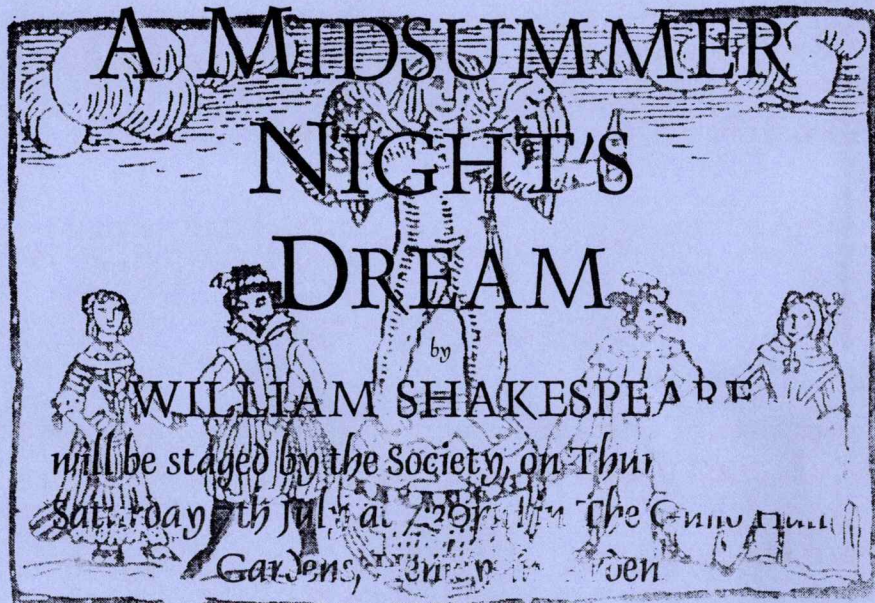 A MIDSUMMER
NIGHT'S
DREAM
by
WILLIAM SHAKESPEARE
will be staged by the Society, on
Saturday 7th July at in The Hall
Gardens,